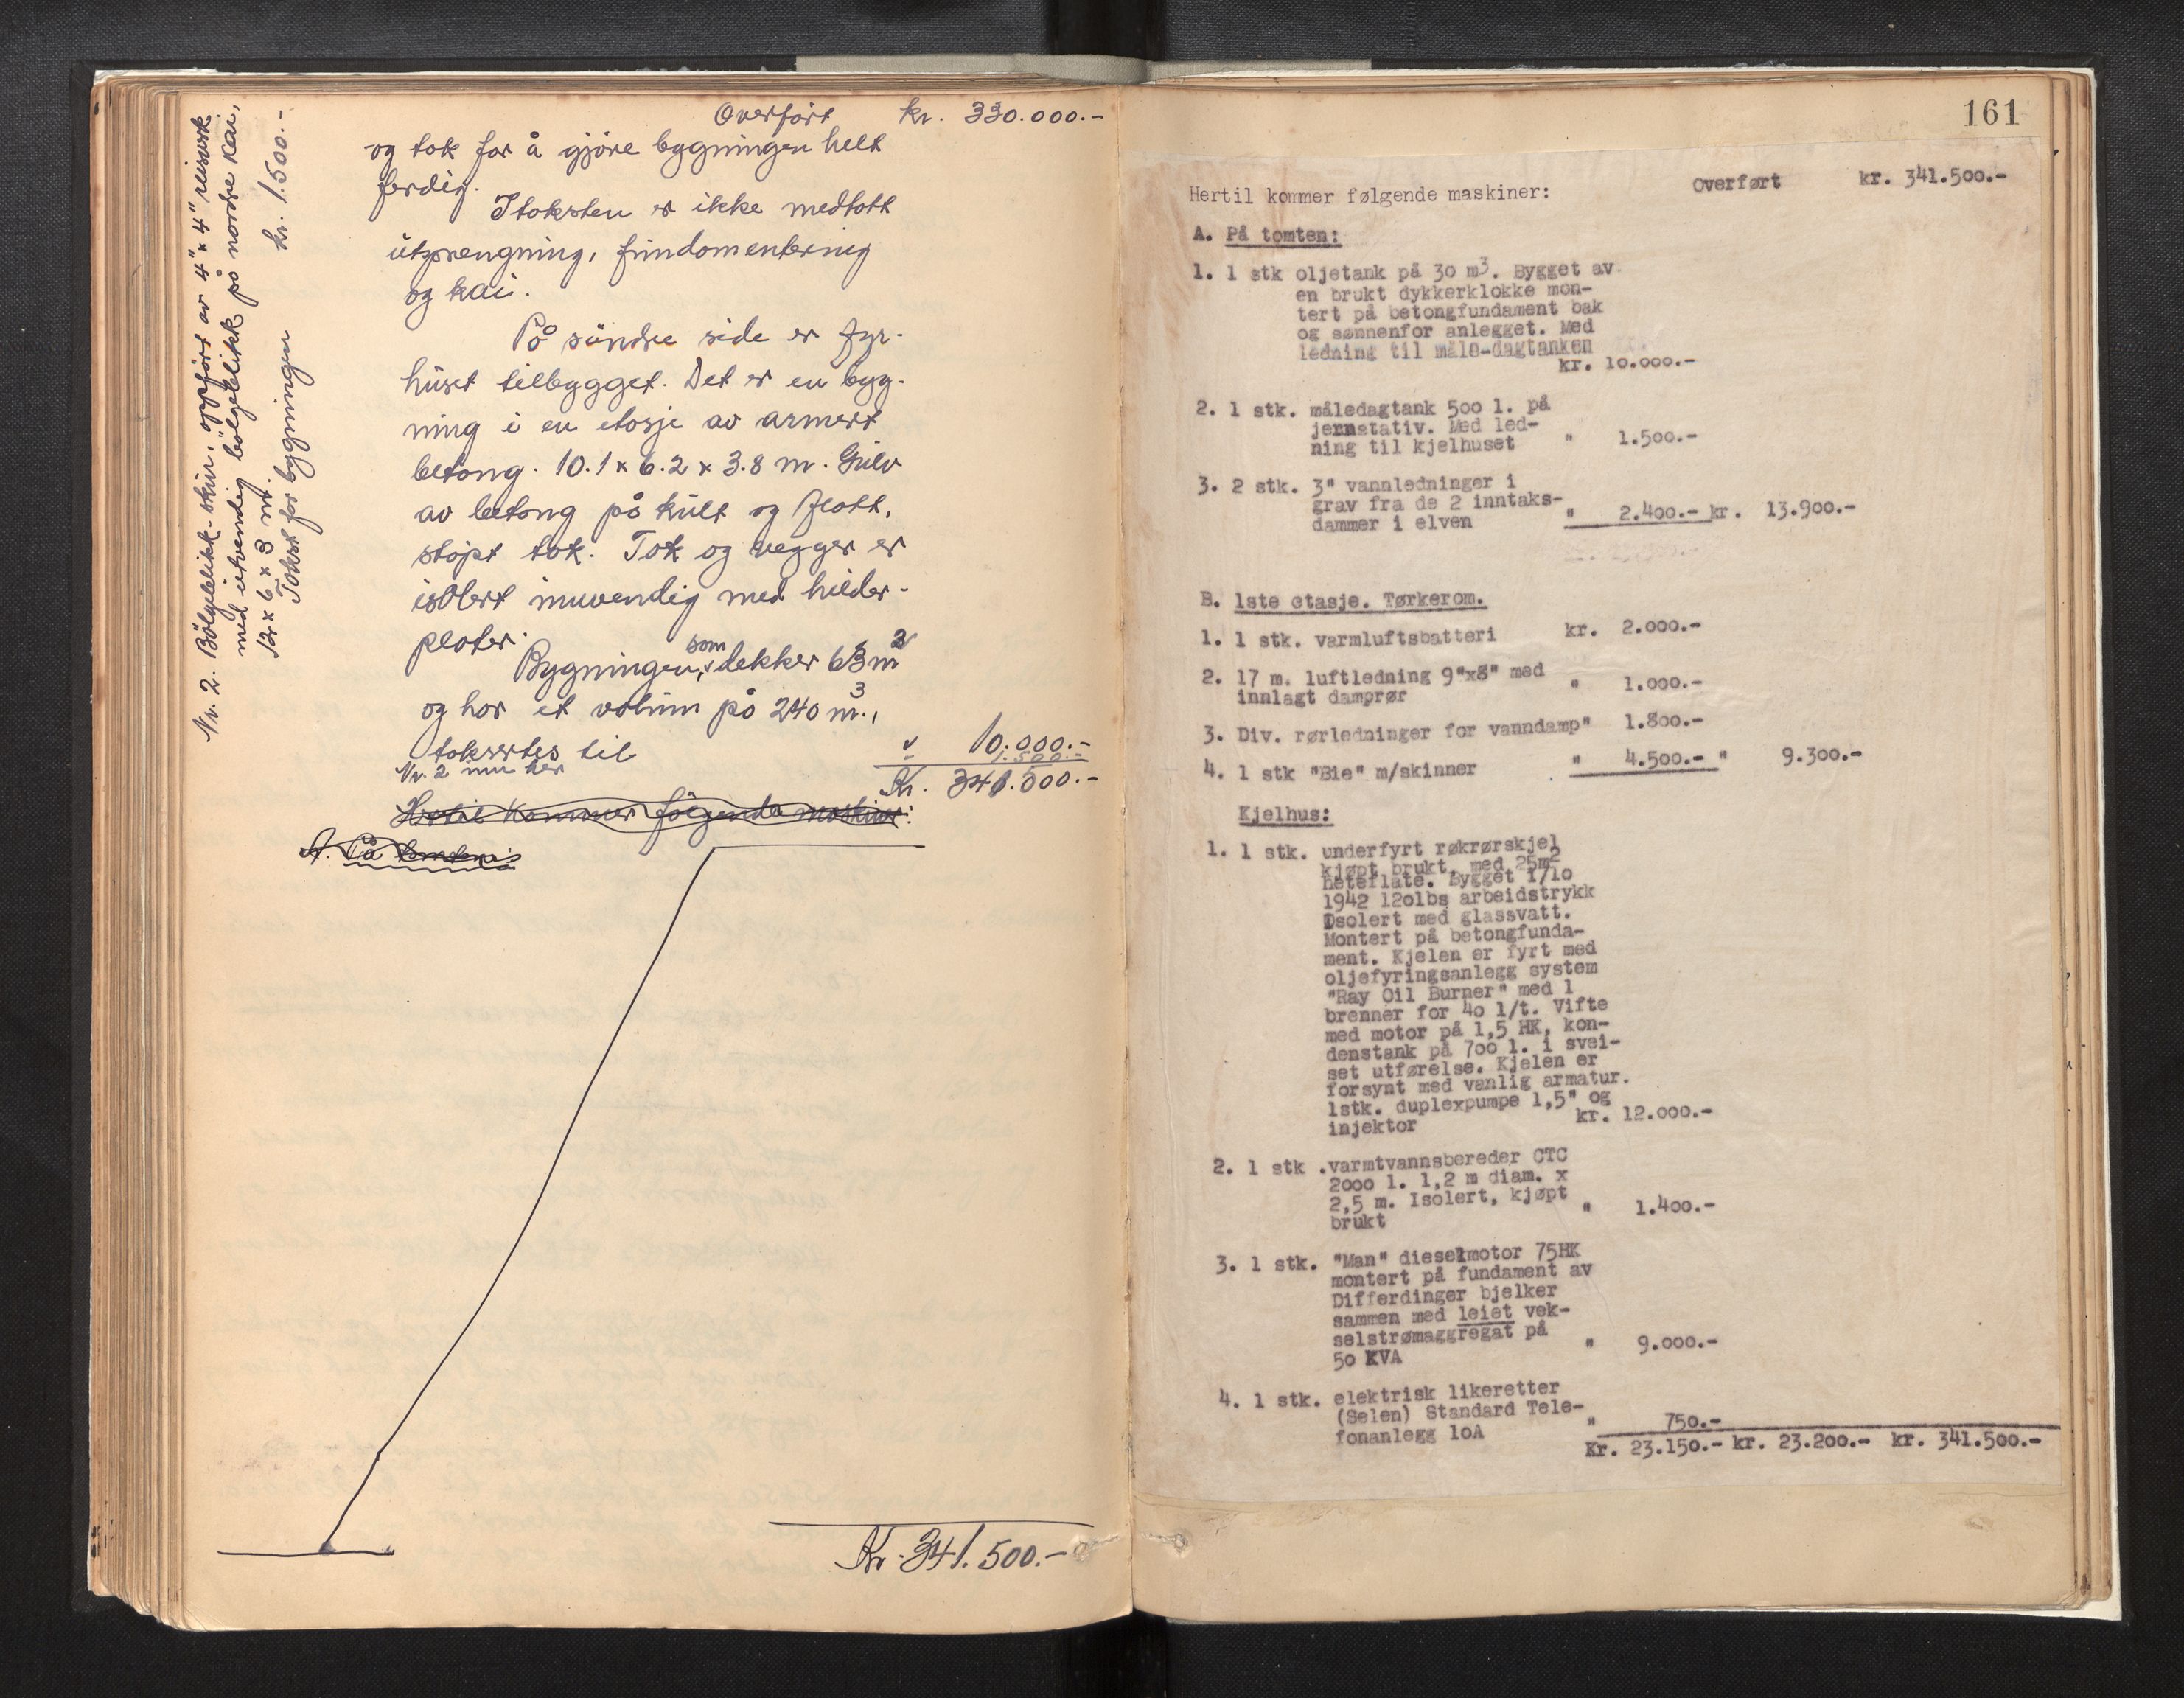 Overført kr. 330.000.-
og tak for å gjöre bygningen helt
ferdig.
I taksten er ikke medtatt
utsprengning, fundamentering
og kai.
På söndre side er fyr-
huset tilbygget. Det er en byg-
ning i en etasje av armert
betong. 10.1 x 6.2 x 3.8 m. Gulv
av betong på kult og flatt,
støpt tak. Tak og vegger er
isolert innvendig med hulder-
plater.
Bygningen, som dekker 63 m2
og har et volum på 240 m3.,
takseres til " 10.000.-
Nr. 2 une her " 1.500.-
Kr. 341.500.-
Hertil kommer følgende maskiner:
A. På tomten:
Kr. 341.500.-
Nr. 2. Bölgeblikk-skur, oppført av 4" x 4" reisverk
med utvendig bölgeblikk på nordre kai,
12 x 6 x 3 m.
Takst for bygningen kr. 1.500.-
161
Overført kr. 341.500.-
Hertil kommer følgende maskiner:
A. På tomten:
1. 1 stk oljetank på 30 m3. Bygget av
en brukt dykkerklokke mon-
tert på betongfundament bak
og sønnenfor anlegget. Med
ledning til måle-dagtanken
kr. 10.000.-
2. 1 stk. måledagtank 500 l. på
jernstativ. Med led-
ning til kjelhuset " 1.500.-
3. 2 stk. 3" vannledninger i
grav fra de 2 inntaks-
dammer i elven " 2.400.- kr. 13.900.-
B. 1ste etasje. Tørkerom.
1. 1 stk. varmluftsbatteri kr. 2.000.-
2. 17 m. luftledning 9"x8" med
innlagt damprør " 1.000.-
3. Div. rørledninger for vanndamp" 1.800.-
4. 1 stk "Bie" m/skinner " 4.500.- " 9.300.-
Kjelhus:
1. 1 stk. underfyrt røkrørskjel
kjøpt brukt, med 25m2
heteflate. Bygget 1/10
1942 120lbs arbeidstrykk
Isolert med glassvatt.
Montert på betongfunda-
ment. Kjelen er fyrt med
oljefyringsanlegg system
"Ray Oil Burner" med 1
brenner for 40 l/t. Vifte
med motor på 1,5 HK, kon-
denstank på 700 l. i svei-
set utførelse. Kjelen er
forsynt med vanlig armatur.
1stk. duplexpumpe 1,5" og
injektor kr. 12.000.-
2. 1 stk .varmtvannsbereder CTC
2000 l. 1,2 m diam. x
2,5 m. Isolert, kjøpt
brukt " 1.400.-
3. 1 stk. "Man" dieselmotor 75HK
montert på fundament av
Differdinger bjelker
sammen med leiet vek-
selstrømaggregat på
50 KVA " 9.000.-
4. 1 stk. elektrisk likeretter
(Selen) Standard Tele-
fonanlegg 10A " 750.-
Kr. 23.150.- kr. 23.200.- kr. 341.500.-